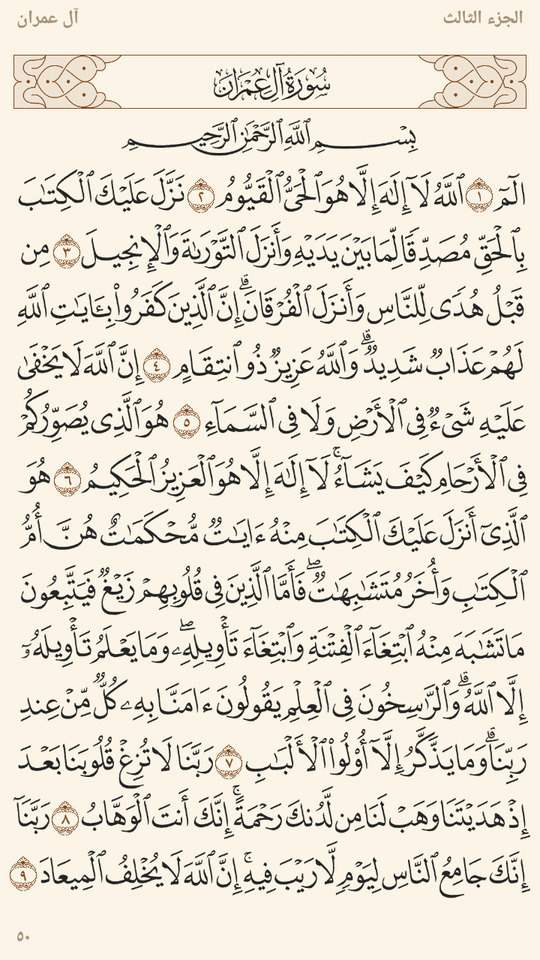 الجزء الثالث
آل عمران
سُورَةُ آلِ عِمْرَانَ
بِسْمِ ٱللَّهِ ٱلرَّحْمَٰنِ ٱلرَّحِيمِ
الٓمٓ ١ ٱللَّهُ لَآ إِلَٰهَ إِلَّا هُوَ ٱلْحَىُّ ٱلْقَيُّومُ ٢ نَزَّلَ عَلَيْكَ ٱلْكِتَٰبَ
بِٱلْحَقِّ مُصَدِّقًا لِّمَا بَيْنَ يَدَيْهِ وَأَنزَلَ ٱلتَّوْرَىٰةَ وَٱلْإِنجِيلَ ٣ مِن
قَبْلُ هُدًى لِّلنَّاسِ وَأَنزَلَ ٱلْفُرْقَانَ ۗ إِنَّ ٱلَّذِينَ كَفَرُوا۟ بِـَٔايَٰتِ ٱللَّهِ
لَهُمْ عَذَابٌ شَدِيدٌ ۗ وَٱللَّهُ عَزِيزٌ ذُو ٱنتِقَامٍ ٤ إِنَّ ٱللَّهَ لَا يَخْفَىٰ
عَلَيْهِ شَىْءٌ فِى ٱلْأَرْضِ وَلَا فِى ٱلسَّمَآءِ ٥ هُوَ ٱلَّذِى يُصَوِّرُكُمْ
فِى ٱلْأَرْحَامِ كَيْفَ يَشَآءُ ۚ لَآ إِلَٰهَ إِلَّا هُوَ ٱلْعَزِيزُ ٱلْحَكِيمُ ٦ هُوَ
ٱلَّذِىٓ أَنزَلَ عَلَيْكَ ٱلْكِتَٰبَ مِنْهُ ءَايَٰتٌ مُّحْكَمَٰتٌ هُنَّ أُمُّ
ٱلْكِتَٰبِ وَأُخَرُ مُتَشَٰبِهَٰتٌ ۖ فَأَمَّا ٱلَّذِينَ فِى قُلُوبِهِمْ زَيْغٌ فَيَتَّبِعُونَ
مَا تَشَٰبَهَ مِنْهُ ٱبْتِغَآءَ ٱلْفِتْنَةِ وَٱبْتِغَآءَ تَأْوِيلِهِۦ ۗ وَمَا يَعْلَمُ تَأْوِيلَهُۥٓ
إِلَّا ٱللَّهُ ۗ وَٱلرَّٰسِخُونَ فِى ٱلْعِلْمِ يَقُولُونَ ءَامَنَّا بِهِۦ كُلٌّ مِّنْ عِندِ
رَبِّنَا ۗ وَمَا يَذَّكَّرُ إِلَّآ أُو۟لُوا۟ ٱلْأَلْبَٰبِ ٧ رَبَّنَا لَا تُزِغْ قُلُوبَنَا بَعْدَ
إِذْ هَدَيْتَنَا وَهَبْ لَنَا مِن لَّدُنكَ رَحْمَةً ۚ إِنَّكَ أَنتَ ٱلْوَهَّابُ ٨ رَبَّنَآ
إِنَّكَ جَامِعُ ٱلنَّاسِ لِيَوْمٍ لَّا رَيْبَ فِيهِ ۚ إِنَّ ٱللَّهَ لَا يُخْلِفُ ٱلْمِيعَادَ ٩
٥٠